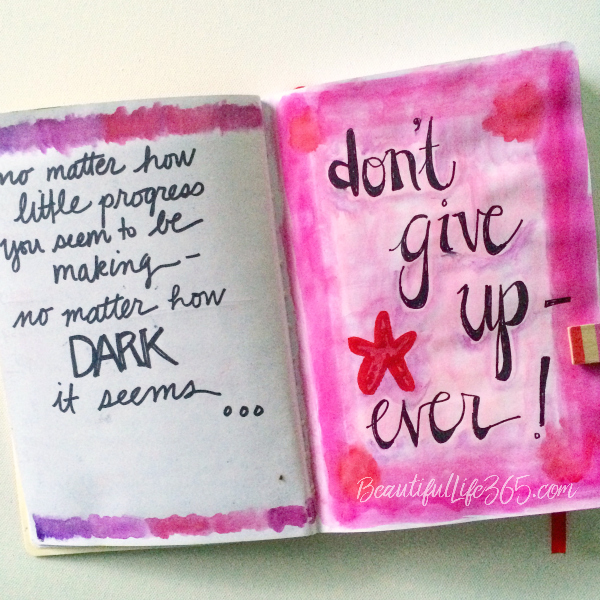 no matter how
little progress
you seem to be
making -
no matter how
DARK
it seems
...
don't
give
up -
ever!
BeautifulLife365.com